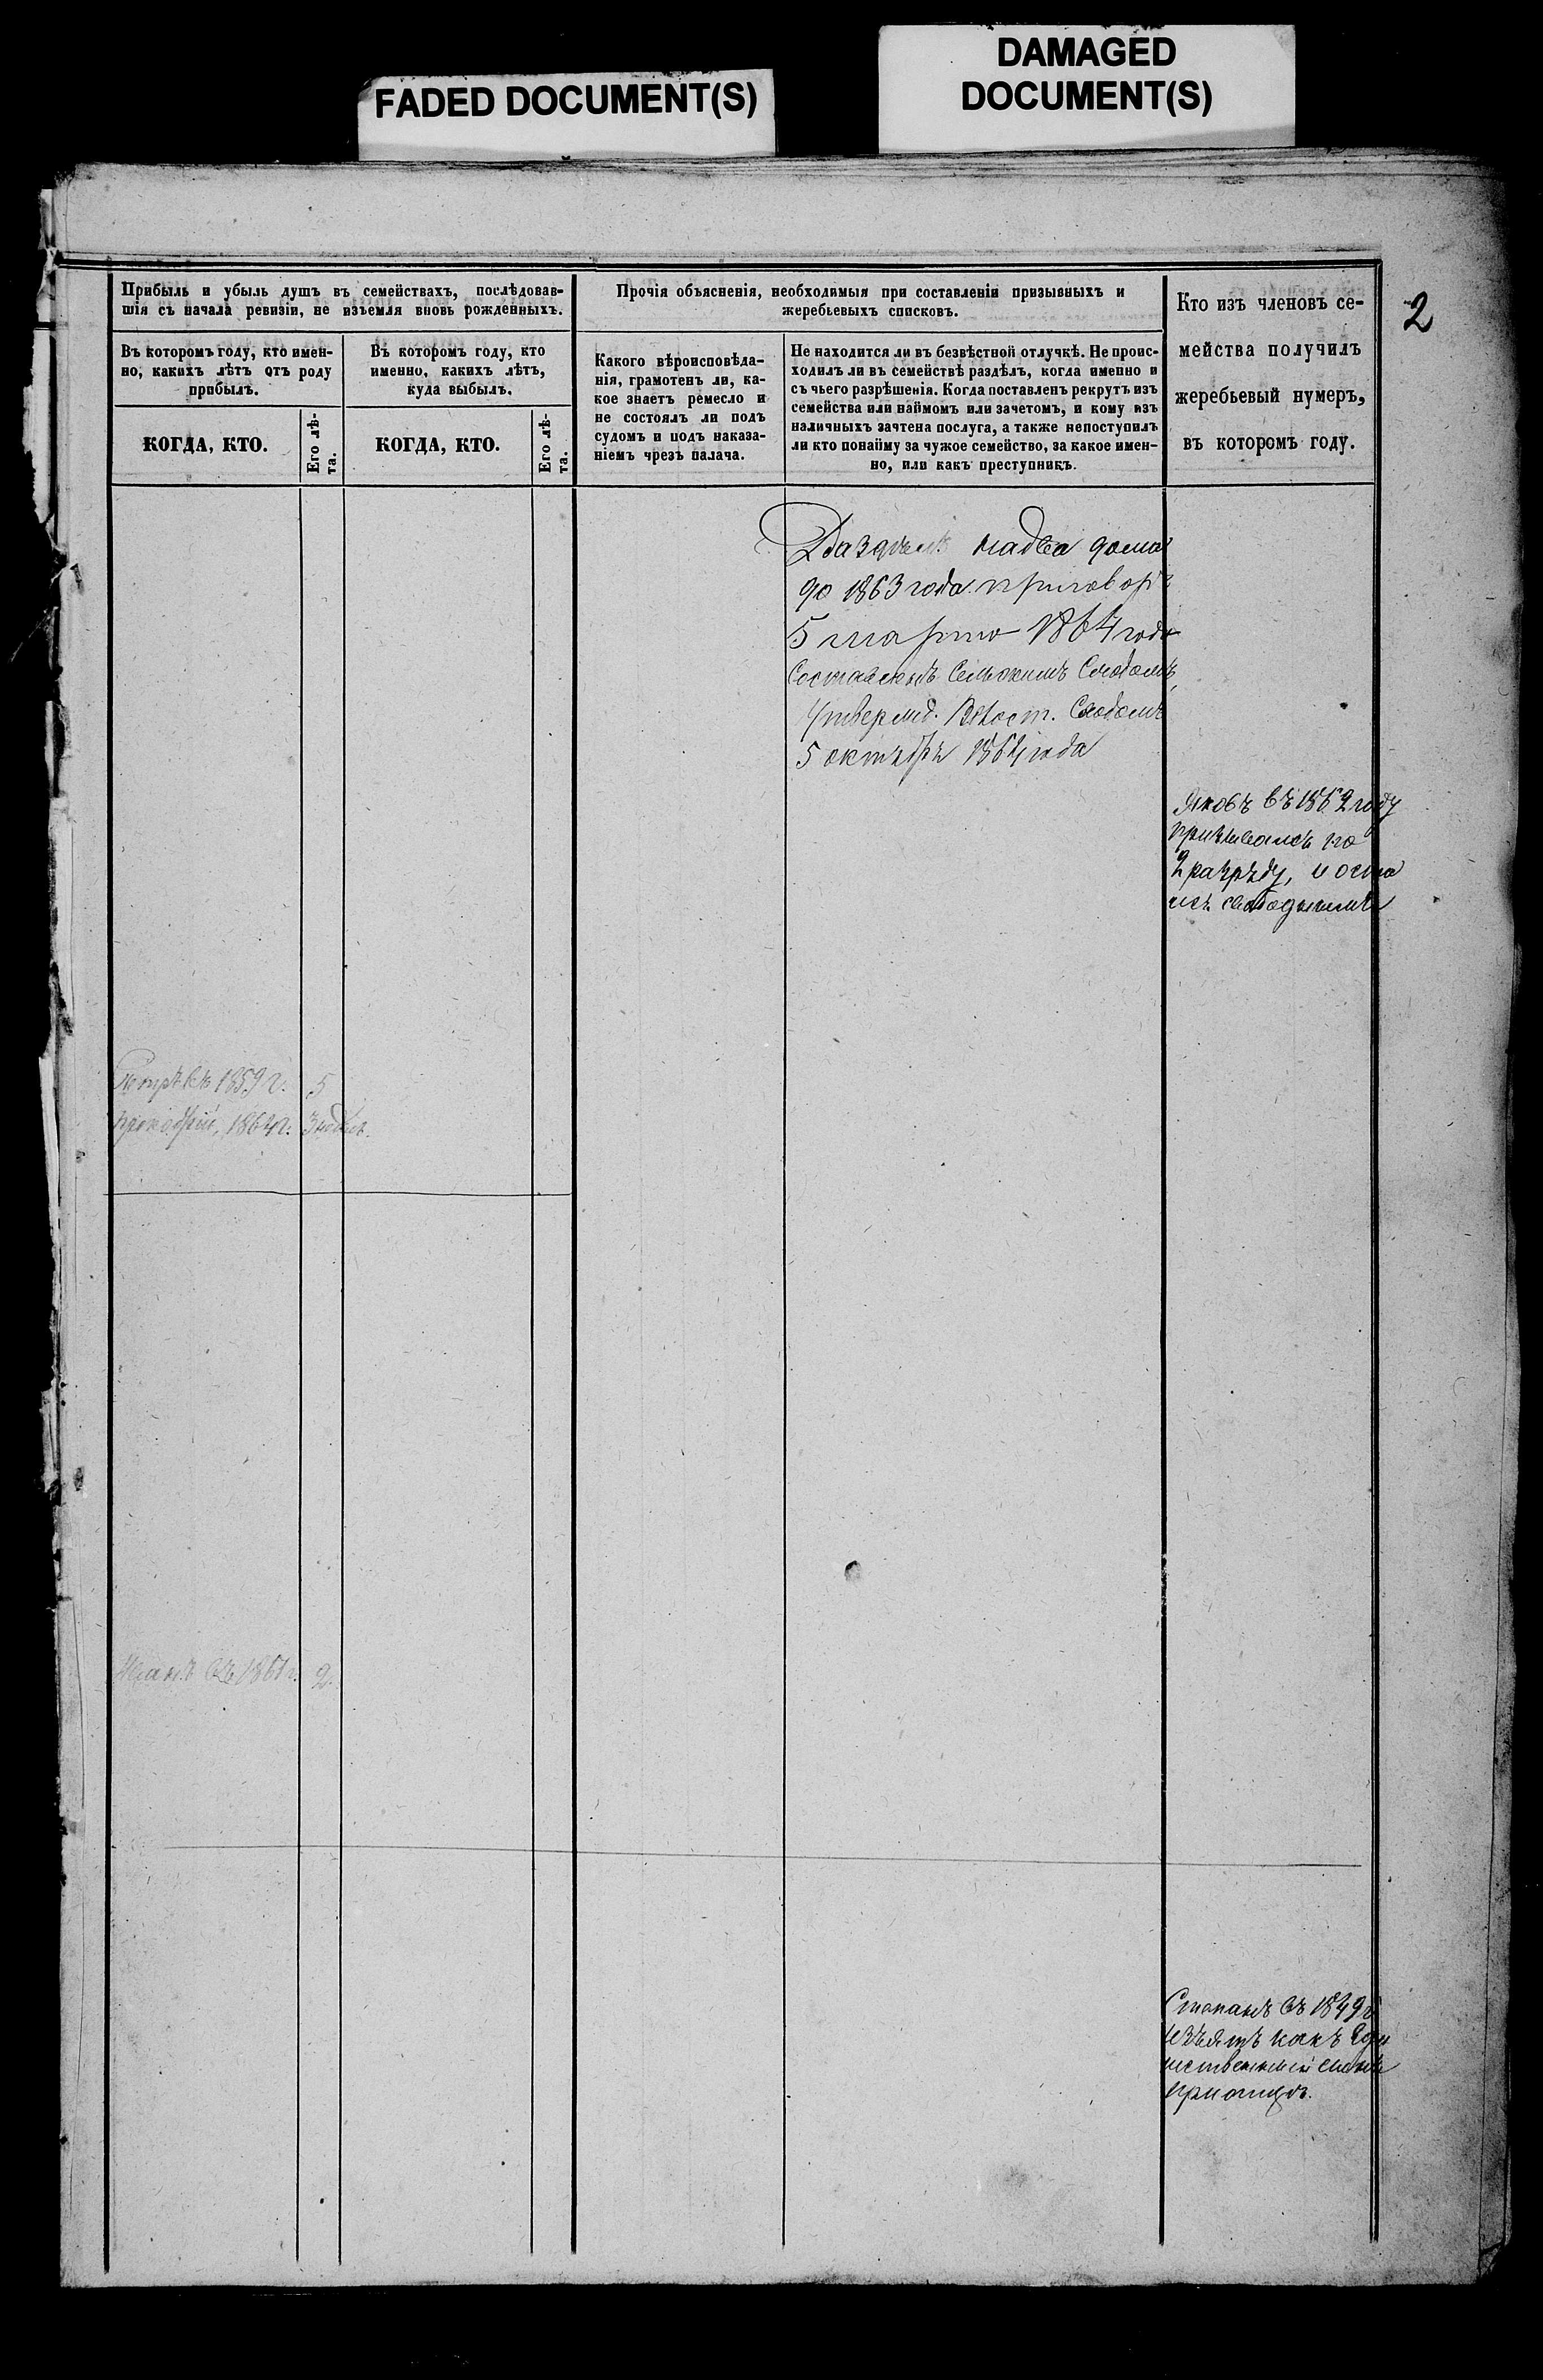 DAMAGED
DOCUMENT(S)
FADED DOCUMENT(S)
2
Прибыль и убыль душъ въ семействахъ, послѣдовав-
шія съ начала ревизіи, не изъемля вновь рожденныхъ.
Въ которомъ году, кто имен-
но, какихъ лѣтъ отъ роду
прибылъ.
КОГДА, КТО.
Его лѣ-
та.
Въ которомъ году, кто
именно, какихъ лѣтъ,
куда выбылъ.
КОГДА, КТО.
Его лѣ-
та.
Прочія объясненія, необходимыя при составленіи призывныхъ и
жеребьевыхъ списковъ.
Какого вѣроисповѣда-
нія, грамотенъ ли, ка-
кое знаетъ ремесло и
не состоялъ ли подъ
судомъ и подъ наказа-
ніемъ чрезъ палача.
Не находится ли въ безвѣстной отлучкѣ. Не проис-
ходилъ ли въ семействѣ раздѣлъ, когда именно и
съ чьего разрѣшенія. Когда поставленъ рекрутъ изъ
семейства или наймомъ или зачетомъ, и кому изъ
наличныхъ зачтена послуга, а также непоступилъ
ли кто понайму за чужое семейство, за какое имен-
но, или какъ преступникъ.
Кто изъ членовъ се-
мейства получилъ
жеребьевый нумеръ,
въ которомъ году.
Раздѣлъ на два дома
до 1863 года. приговоръ
5 марта 1864 года
Составленъ Сельскимъ Сходомъ,
Утвержд. Волост. Сходомъ
5 октября 1864 года
Яковъ въ 1862 году
призывался по
2 разряду, и оста
лся свободнымъ
Петръ въ 1859 г. 5
1864 г. 3 недѣл.
Иванъ въ 1861 г. 2.
Степанъ въ 1849 г.
изъятъ какъ Еди
нственный сынъ
при отцѣ.